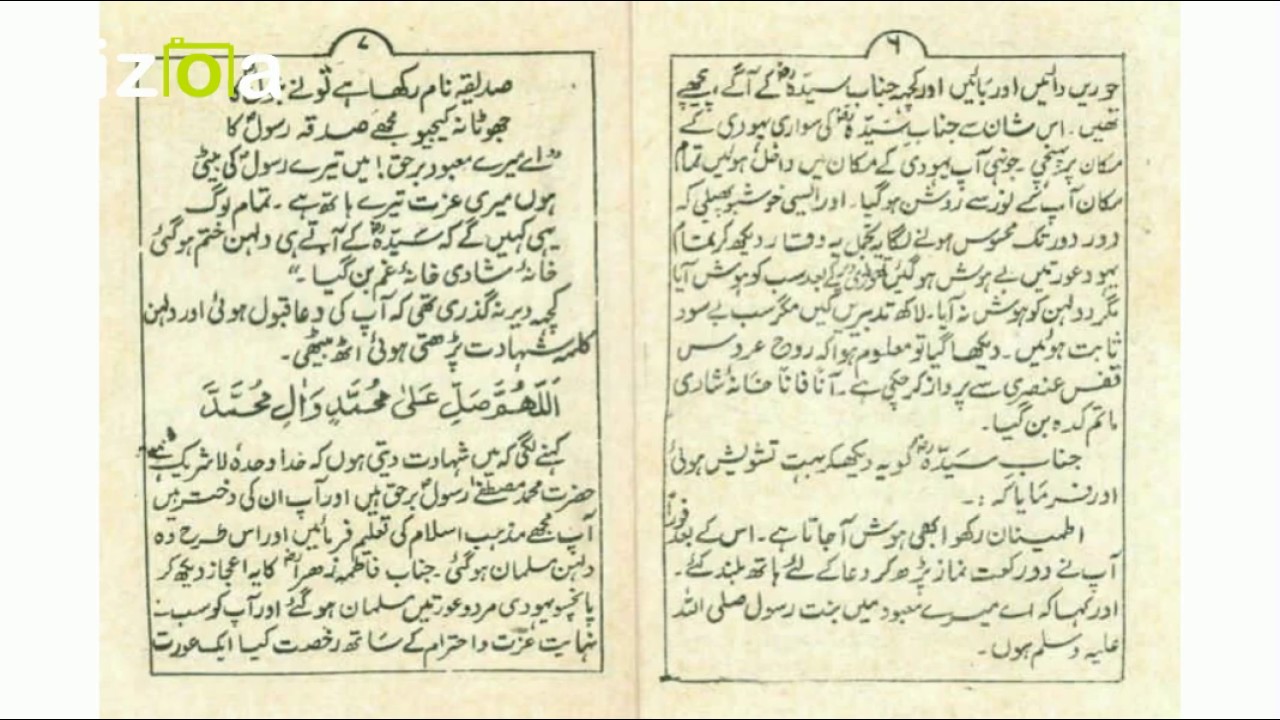 ۶
حوریں دائیں اور بائیں اور کچھ جناب سیّدہؓ کے آگے پیچھے
تھیں۔ اس شان سے جناب سیّدہؓ کی سواری یہودی کے
مکان پر پہنچی۔ جونہی آپ یہودی کے مکان میں داخل ہوئیں تمام
مکان آپ کے نور سے روشن ہوگیا۔ اور ایسی خوشبو پھیلی کہ
دور دور تک محسوس ہونے لگا یہ تجمل یہ وقار دیکھ کر تمام
یہود عورتیں بے ہوش ہو گئیں تھوڑی دیر کے بعد سب کو ہوش آیا
مگر دولہن کو ہوش نہ آیا۔ لاکھ تدبیریں کیں مگر سب بے سود
ثابت ہوئیں۔ دیکھا گیا تو معلوم ہوا کہ روح عروس
قفس عنصری سے پرواز کر چکی ہے۔ آناً فاناً خانۂ شادی
ماتم کدہ بن گیا۔
جناب سیّدہؓ کو یہ دیکھکر بہت تشویش ہوئی
اور فرمایا کہ :۔
اطمینان رکھو ابھی ہوش آجاتا ہے۔ اس کے بعد فوراً
آپ نے دو رکعت نماز پڑھ کر دعا کے لئے ہاتھ بلند کئے۔
اور کہا کہ اے میرے معبود میں بنت رسول صلی اللہ
علیہ وسلم ہوں۔
۷
صدیقہ نام رکھا ہے تو نے بتول کا
جھوٹا نہ کیجیو مجھے صدقہ رسولؐ کا
"اے میرے معبود برحق! میں تیرے رسولؐ کی بیٹی
ہوں میری عزت تیرے ہاتھ ہے۔ تمام لوگ
یہی کہیں گے کہ سیّدہؓ کے آتے ہی دلہن ختم ہو گئی
خانۂ شادی خانۂ غم بن گیا۔"
کچھ دیر نہ گذری تھی کہ آپ کی دعا قبول ہوئی اور دلہن
کلمہ شہادت پڑھتی ہوئی اٹھ بیٹھی۔
اَللّٰھُمَّ صَلِّ عَلٰی مُحَمَّدٍ وَّاٰلِ مُحَمَّدَ
کہنے لگی کہ میں شہادت دیتی ہوں کہ خدا وحدہٗ لا شریک ہے
حضرت محمد مصطفےٰ رسولؐ برحق ہیں اور آپ ان کی دختر ہیں
آپ مجھے مذہب اسلام کی تعلیم فرمائیں اور اس طرح وہ
دلہن مسلمان ہوگئی۔ جناب فاطمہ زھراؓ کا یہ اعجاز دیکھ کر
پانچسو یہودی مرد و عورتیں مسلمان ہو گئے اور آپ کو سب نے
نہایت عزت و احترام کے ساتھ رخصت کیا ایک عورت
izola